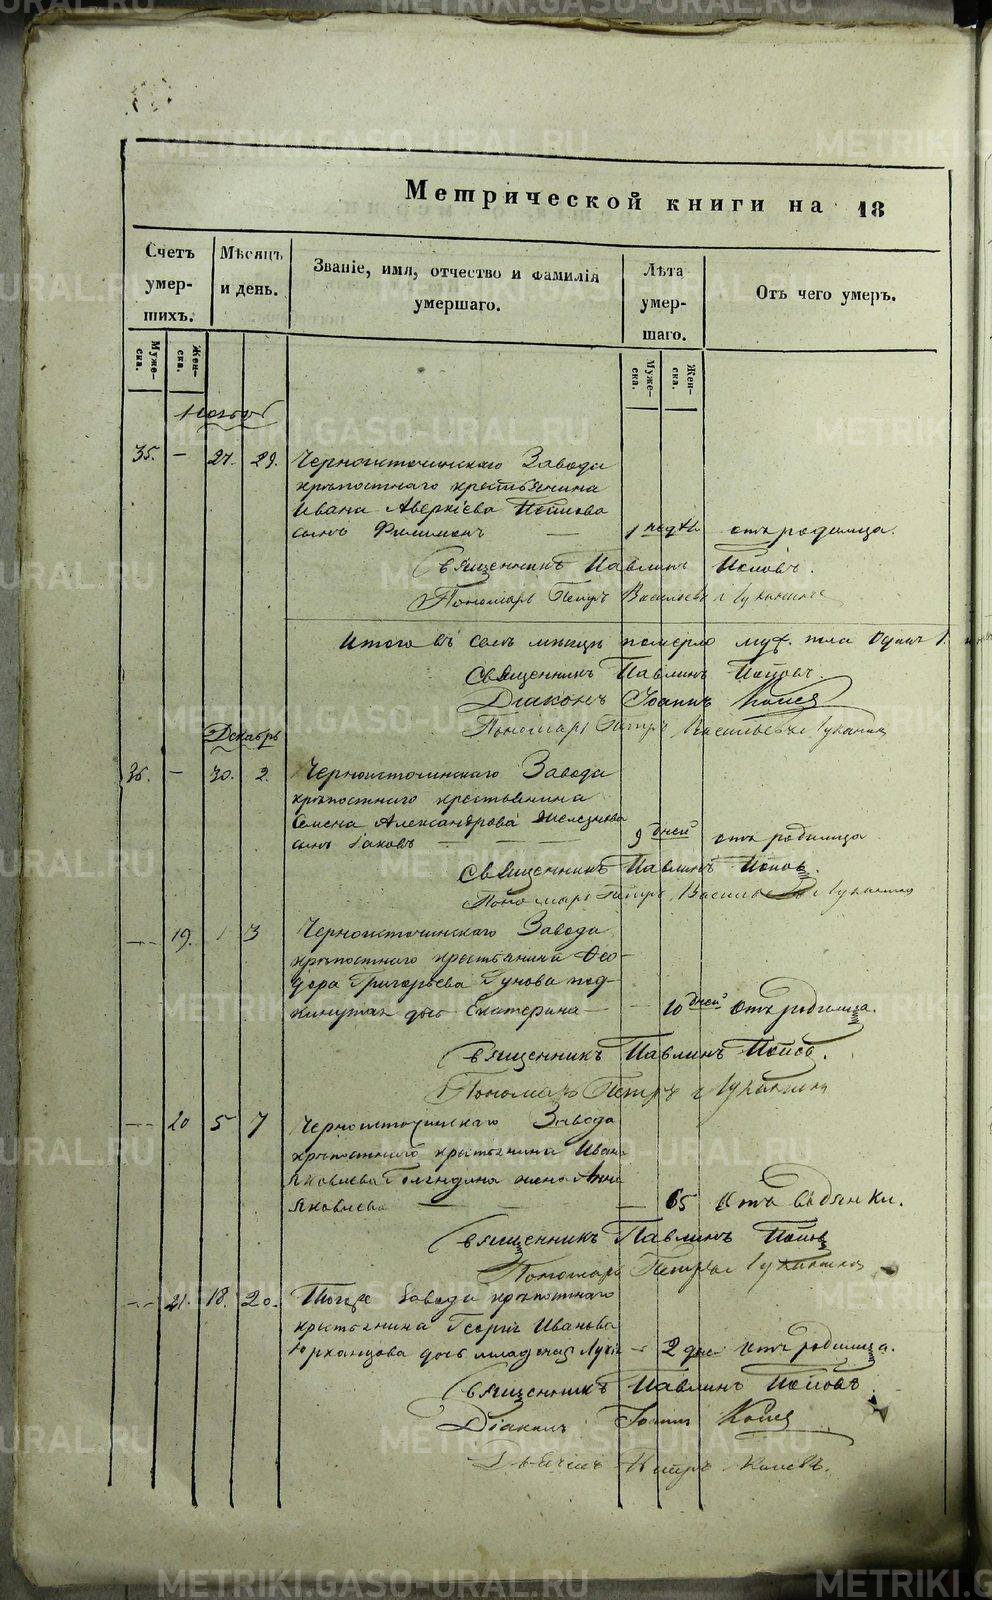 METRIKI.GASO-URAL.RU
Метрической книги на 18
Счетъ умер-шихъ.
Мѣсяцъ и день.
Званіе, имя, отчество и фамилія умершаго.
Лѣта умер-шаго.
Отъ чего умеръ.
Муже-ска.
Жен-ска.
Муже-ска.
Жен-ска.
Ноябрь
35. — 27. 29. Черноисточинскаго Завода
крѣпостнаго крестьянина
Ивана Аверкіева Попова
сынъ Филимонъ — 1 недѣл. отъ родимца.
Священникъ Павлинъ Поповъ.
Пономарь Петръ Васильевъ Луканинъ
Итого въ семъ мѣсяцѣ померло муж. пола одинъ 1.
Священникъ Павлинъ Поповъ
Діаконъ Іоаннъ
Пономарь Петръ Васильевъ Луканин
Декабрь
36. — 30. 2. Черноисточинскаго Завода
крѣпостнаго крестьянина
Семена Александрова Железнова
сынъ Іаковъ — 9 дней отъ родимца
Священникъ Павлинъ Попов.
Пономарь Петръ Васильевъ Луканинъ
— 19. 1 3 Черноисточинскаго Завода
крѣпостнаго крестьянина Ѳео-
дора Григорьева Гунова под-
кинутая дочь Екатерина — 10 дней отъ родимца.
Священникъ Павлинъ Попов.
Пономарь Петръ Луканинъ
— 20 5 7 Черноисточинскаго Завода
крѣпостнаго крестьянина Ивана
Яковлева жена Анна
Яковлева — 65 Отъ водянки.
Священникъ Павлинъ Попов
Пономарь Петръ Луканинъ
— 21. 18. 20. Тогоже Завода крѣпостнаго
крестьянина Георгія Иванова
дочь младенец — 2 дн. отъ родимца.
Священникъ Павлинъ Поповъ
Діаконъ Іоаннъ
Дьячекъ Петръ